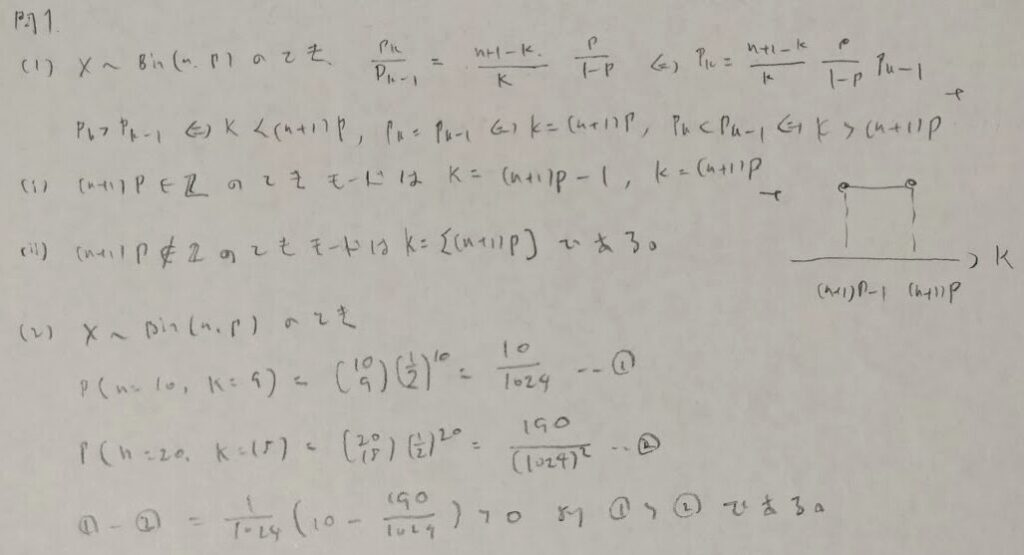 問1.
(1) X ~ Bin(n, p) のとき, P_k/P_{k-1} = (n+1-k)/k · p/(1-p) ⇔ P_k = (n+1-k)/k · p/(1-p) P_{k-1}
P_k > P_{k-1} ⇔ k < (n+1)p, P_k = P_{k-1} ⇔ k = (n+1)p, P_k < P_{k-1} ⇔ k > (n+1)p
(i) (n+1)p ∈ Z のとき モードは k = (n+1)p - 1, k = (n+1)p
(ii) (n+1)p ∉ Z のとき モードは k = [(n+1)p] である。
→ k
(n+1)p-1 (n+1)p
(2) X ~ Bin(n, p) のとき
P(n=10, k=9) = (10 9)(1/2)^10 = 10/1024 -- ①
P(n=20, k=15) = (20 15)(1/2)^20 = 190/(1024)^2 -- ②
① - ② = 1/1024 (10 - 190/1024) > 0 より ① > ② である。